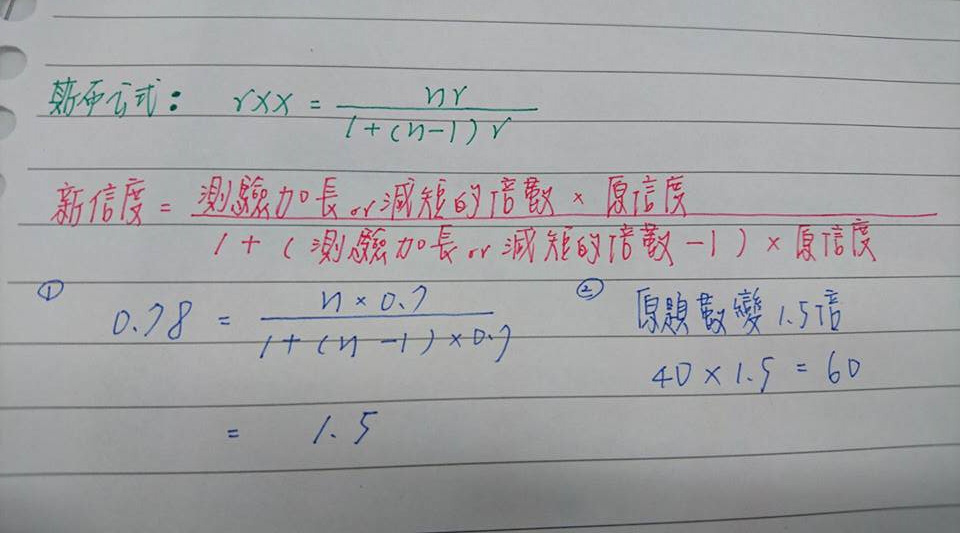 斯布公式： rxx = nr / 1+(n-1)r
新信度 = 測驗加長or減短的倍數 × 原信度 / 1 + (測驗加長or減短的倍數 -1) × 原信度
① 0.78 = n × 0.7 / 1+(n-1)×0.7
= 1.5
② 原題數變1.5倍
40 × 1.5 = 60